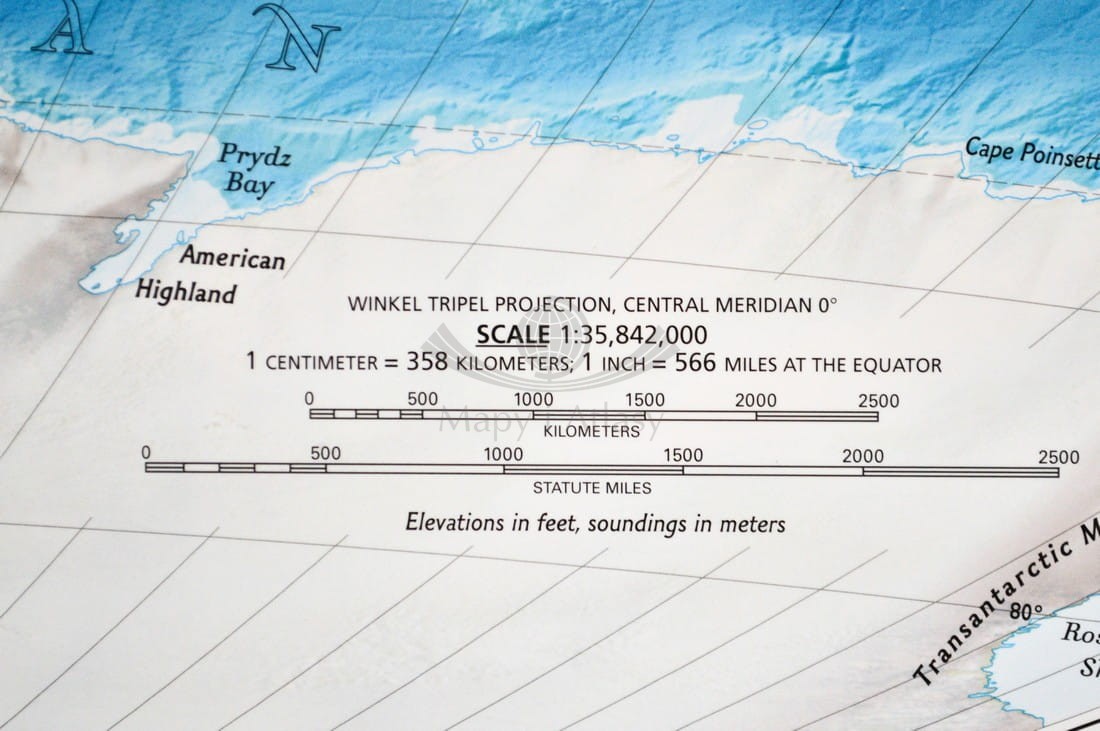 A N
Prydz
Bay
Cape Poinsett
American
Highland
WINKEL TRIPEL PROJECTION, CENTRAL MERIDIAN 0°
SCALE 1:35,842,000
1 CENTIMETER = 358 KILOMETERS; 1 INCH = 566 MILES AT THE EQUATOR
0 500 1000 1500 2000 2500
Mapy i Atlasy
KILOMETERS
0 500 1000 1500 2000 2500
STATUTE MILES
Elevations in feet, soundings in meters
Transantarctic M
80°
Ros
Sh